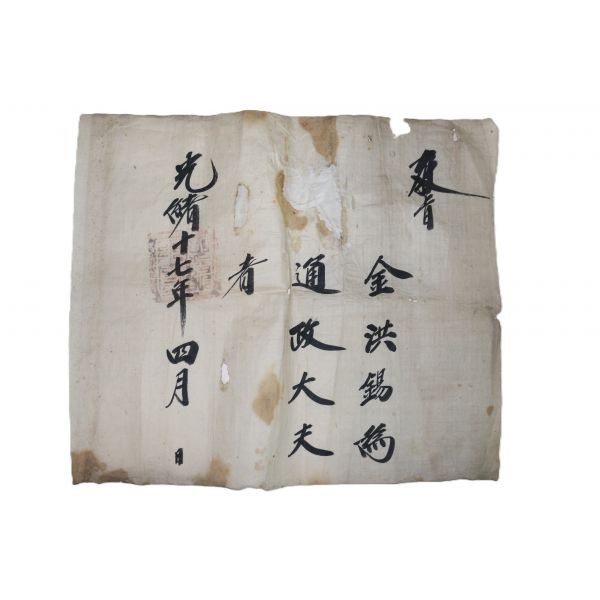 教旨
金洪錫為
通政大夫
者
光緖十七年四月 日